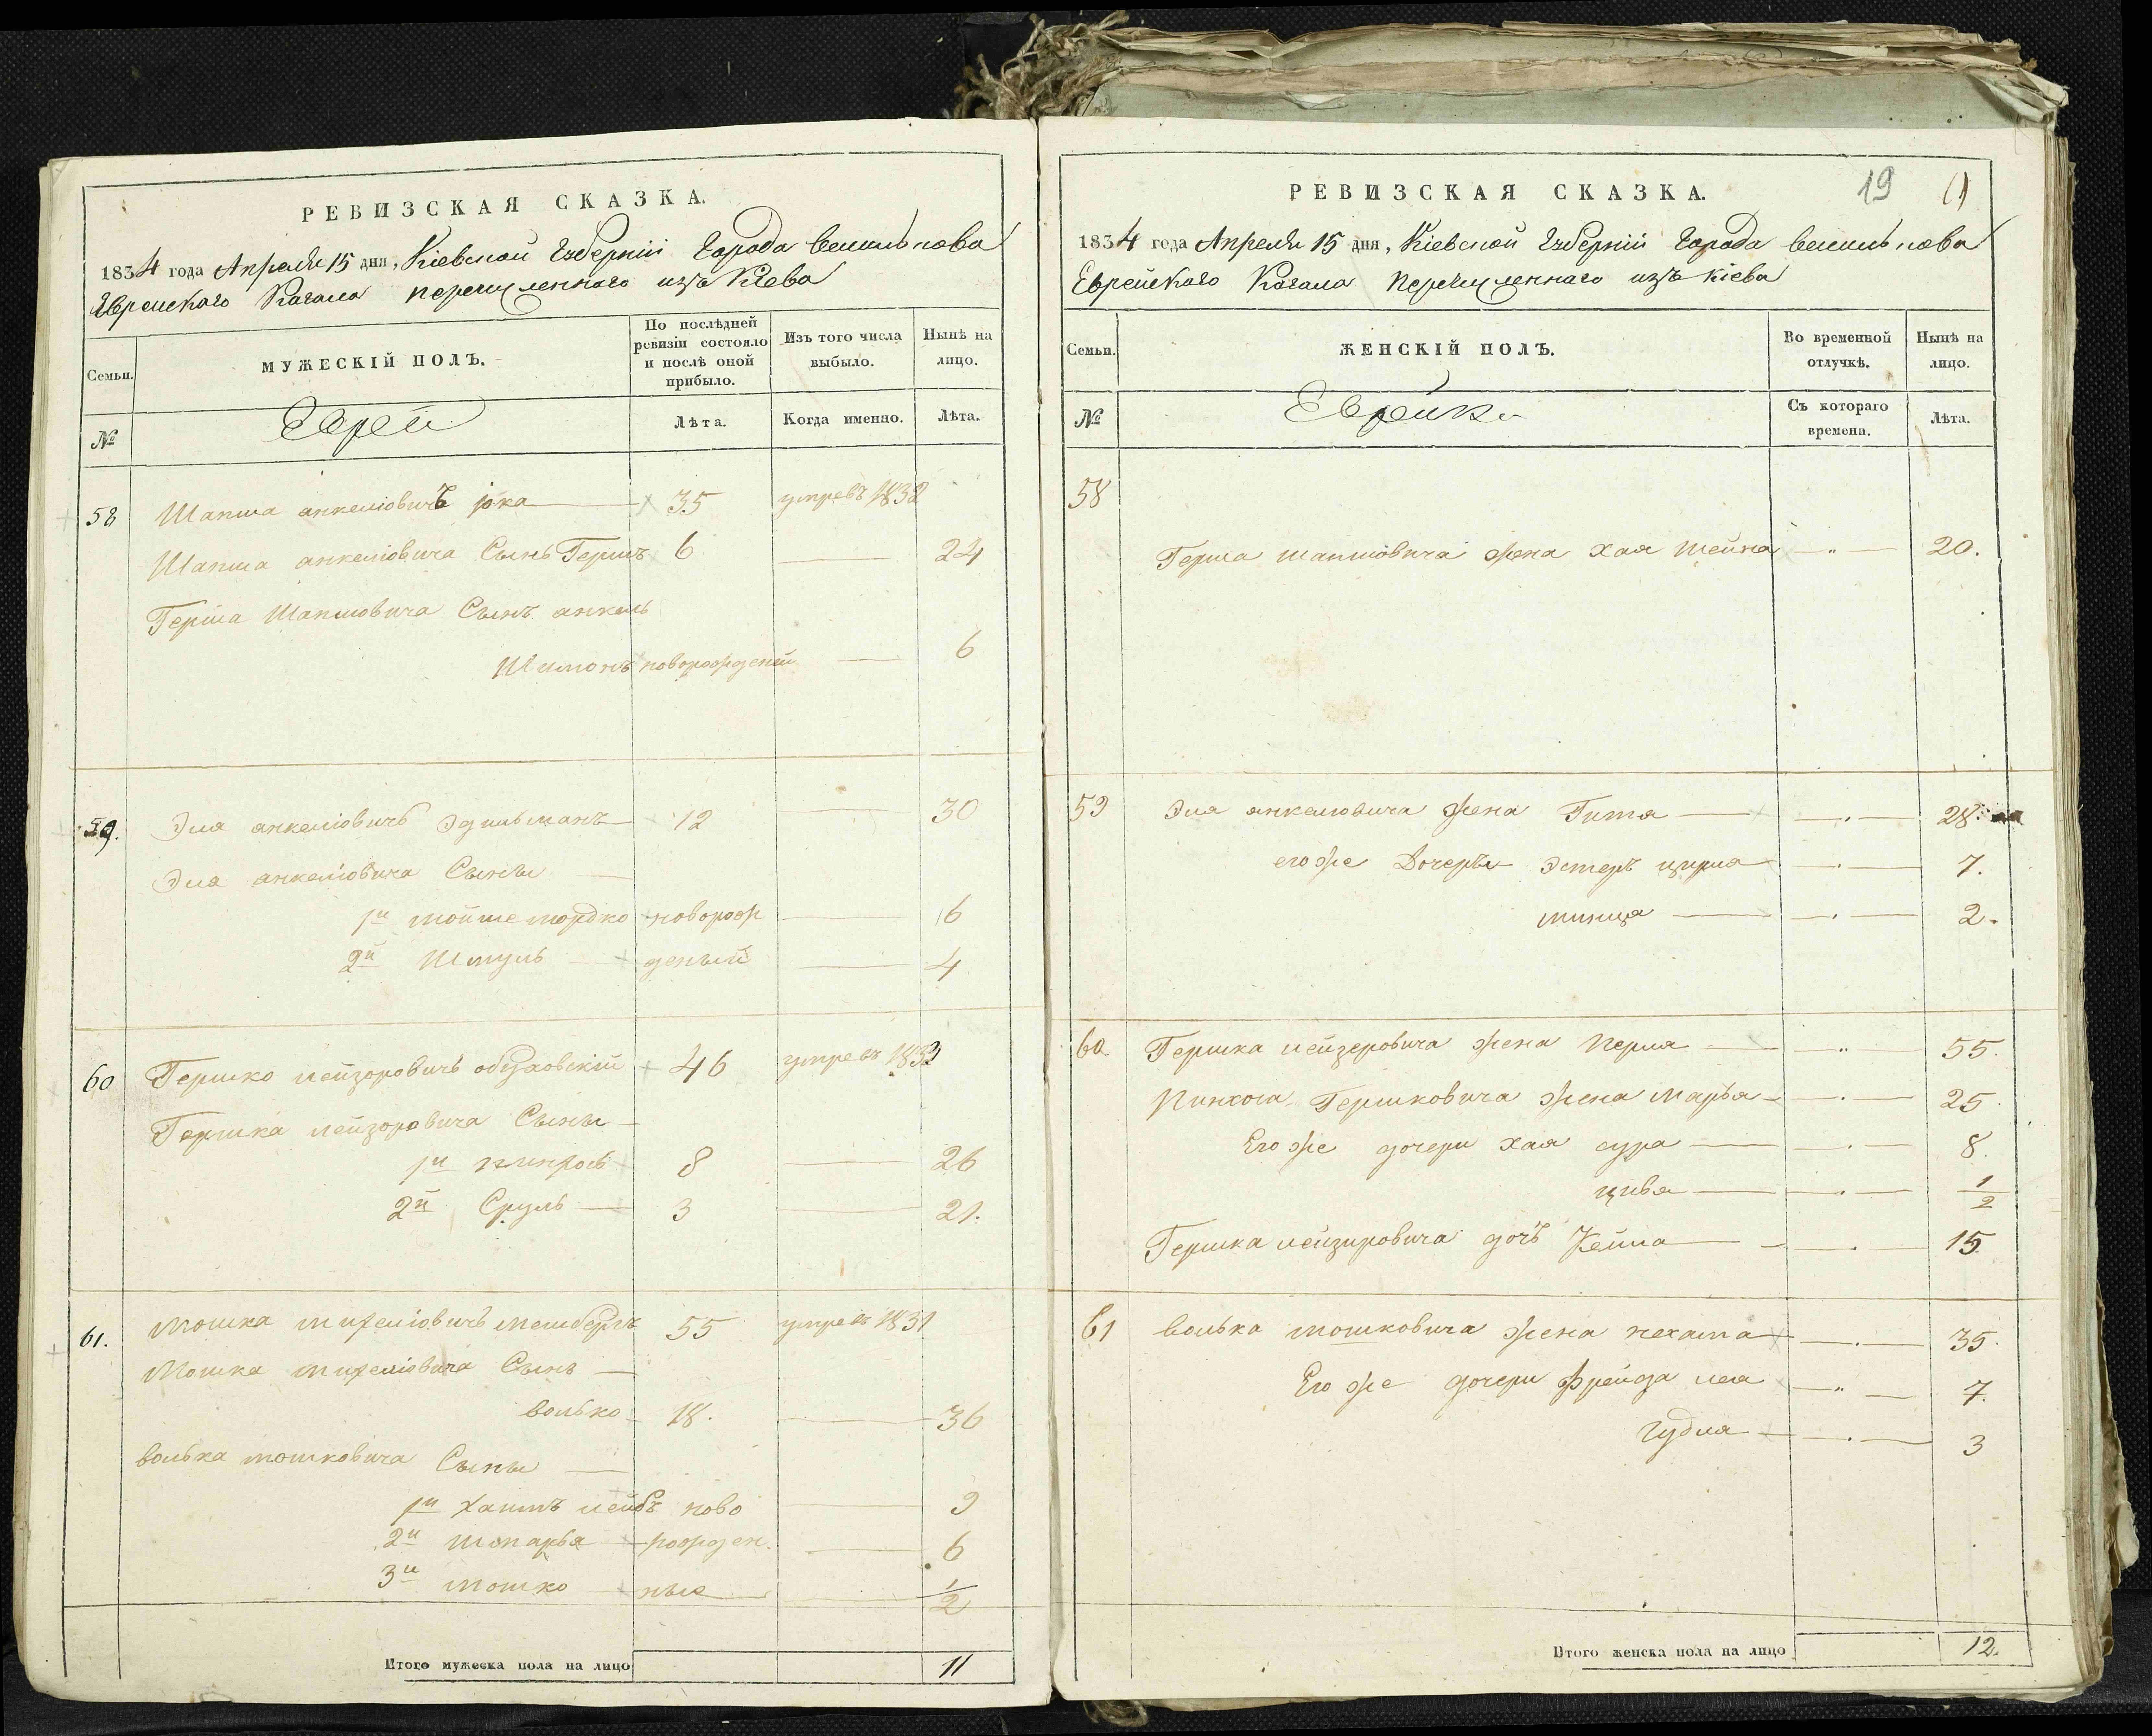 РЕВИЗСКАЯ СКАЗКА.
1834 года Апреля 15 дня, Кіевской Губерніи Города Василькова
Еврейскаго Кагала перечисленнаго изъ Кіева
Семьи.
МУЖЕСКІЙ ПОЛЪ.
По послѣдней ревизіи состояло и послѣ оной прибыло.
Изъ того числа выбыло.
Нынѣ на лицо.
№
Евреи
Лѣта.
Когда именно.
Лѣта.
58 Шапша анкеліовичъ 35 умревъ 1832
Шапша анкеліовича Сынъ Гершъ 6 — 24
Герша Шапшовича Сынъ анкель
Шимонъ новорожденый — 6
59. Эля анкеліовичъ Эдильманъ 12 — 30
Эля анкеліовича Сыны —
1й мойше мордко новорож — 16
2й Шмуль — деный — 4
60 Гершко лейзоровичъ 46 умревъ 1833
Гершка лейзоровича Сыны —
1й пинхось 8 — 26
2й Сруль — 3 — 21.
61. Мошка михеліовичъ 55 умревъ 1831
Мошка михеліовича Сынъ —
волько 18. — 36
волька мошковича Сыны —
1й Хаимъ лейбъ ново — 9
2й шмарья — рожден. — 6
3й мошко — ные — 1/2
Итого мужеска пола на лицо 11
РЕВИЗСКАЯ СКАЗКА.
19
1834 года Апреля 15 дня, Кіевской Губерніи Города Василькова
Еврейскаго Кагала перечисленнаго изъ Кіева
Семьи.
ЖЕНСКІЙ ПОЛЪ.
Во временной отлучкѣ.
Нынѣ на лицо.
№
Еврейки
Съ котораго времена.
Лѣта.
58
Герша шапшовича жена хая шейна — " — 20.
59 Эля анкеловича жена Гитя — 28.
его же Дочеры эстеръ цирля — 7.
минця — 2.
60. Гершка лейзеровича жена перля — " — 55.
Пинхоса Гершковича жена марья — 25.
Его же дочери хая сура — 8.
цивя — 1/2
Гершка лейзировича дочь Хейна — 15.
61 волька мошковича жена нехама — 35.
Его же дочери фрейда лея — " — 7.
гудля — 3
Итого женска пола на лицо 12.